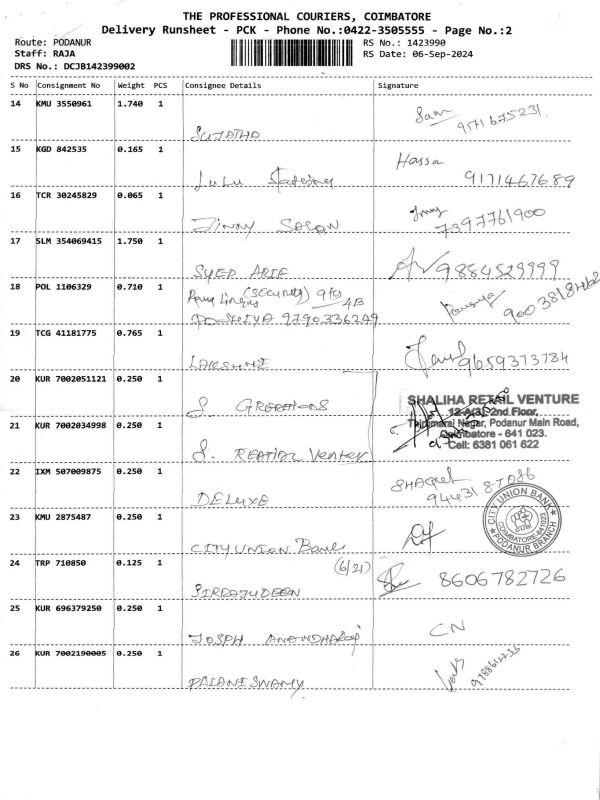 THE PROFESSIONAL COURIERS, COIMBATORE
Delivery Runsheet - PCK - Phone No.:0422-3505555 - Page No.:2
Route: PODANUR
Staff: RAJA
DRS No.: DCJB142399002
RS No.: 1423990
RS Date: 06-Sep-2024
S No Consignment No Weight PCS Consignee Details Signature
14 KMU 3550961 1.740 1
SUJATHA
15 KGD 842535 0.165 1
LULU
Hassa
9171467689
16 TCR 30245829 0.065 1
JINNY
7397761900
17 SLM 354069415 1.750 1
SYED
9884529999
18 POL 1106329 0.710 1
(Security)
9790336249
19 TCG 41181775 0.765 1
LAKSHME
9659373784
20 KUR 7002051121 0.250 1
S
SHALIHA RETAIL VENTURE
12-A(3), 2nd Floor,
Thirumarai Nagar, Podanur Main Road,
Coimbatore - 641 023.
Cell: 6381 061 622
21 KUR 7002034998 0.250 1
S. Venter
22 IXM 507009875 0.250 1
DELUXE
23 KMU 2875487 0.250 1
CITY UNION Bank
CITY UNION BANK
COIMBATORE-641023
PODANUR BRANCH
24 TRP 710850 0.125 1
(6/21)
SIRDAJUDEEN
8606782726
25 KUR 696379250 0.250 1
JOSPH
CN
26 KUR 7002190005 0.250 1
PALANESWAMY